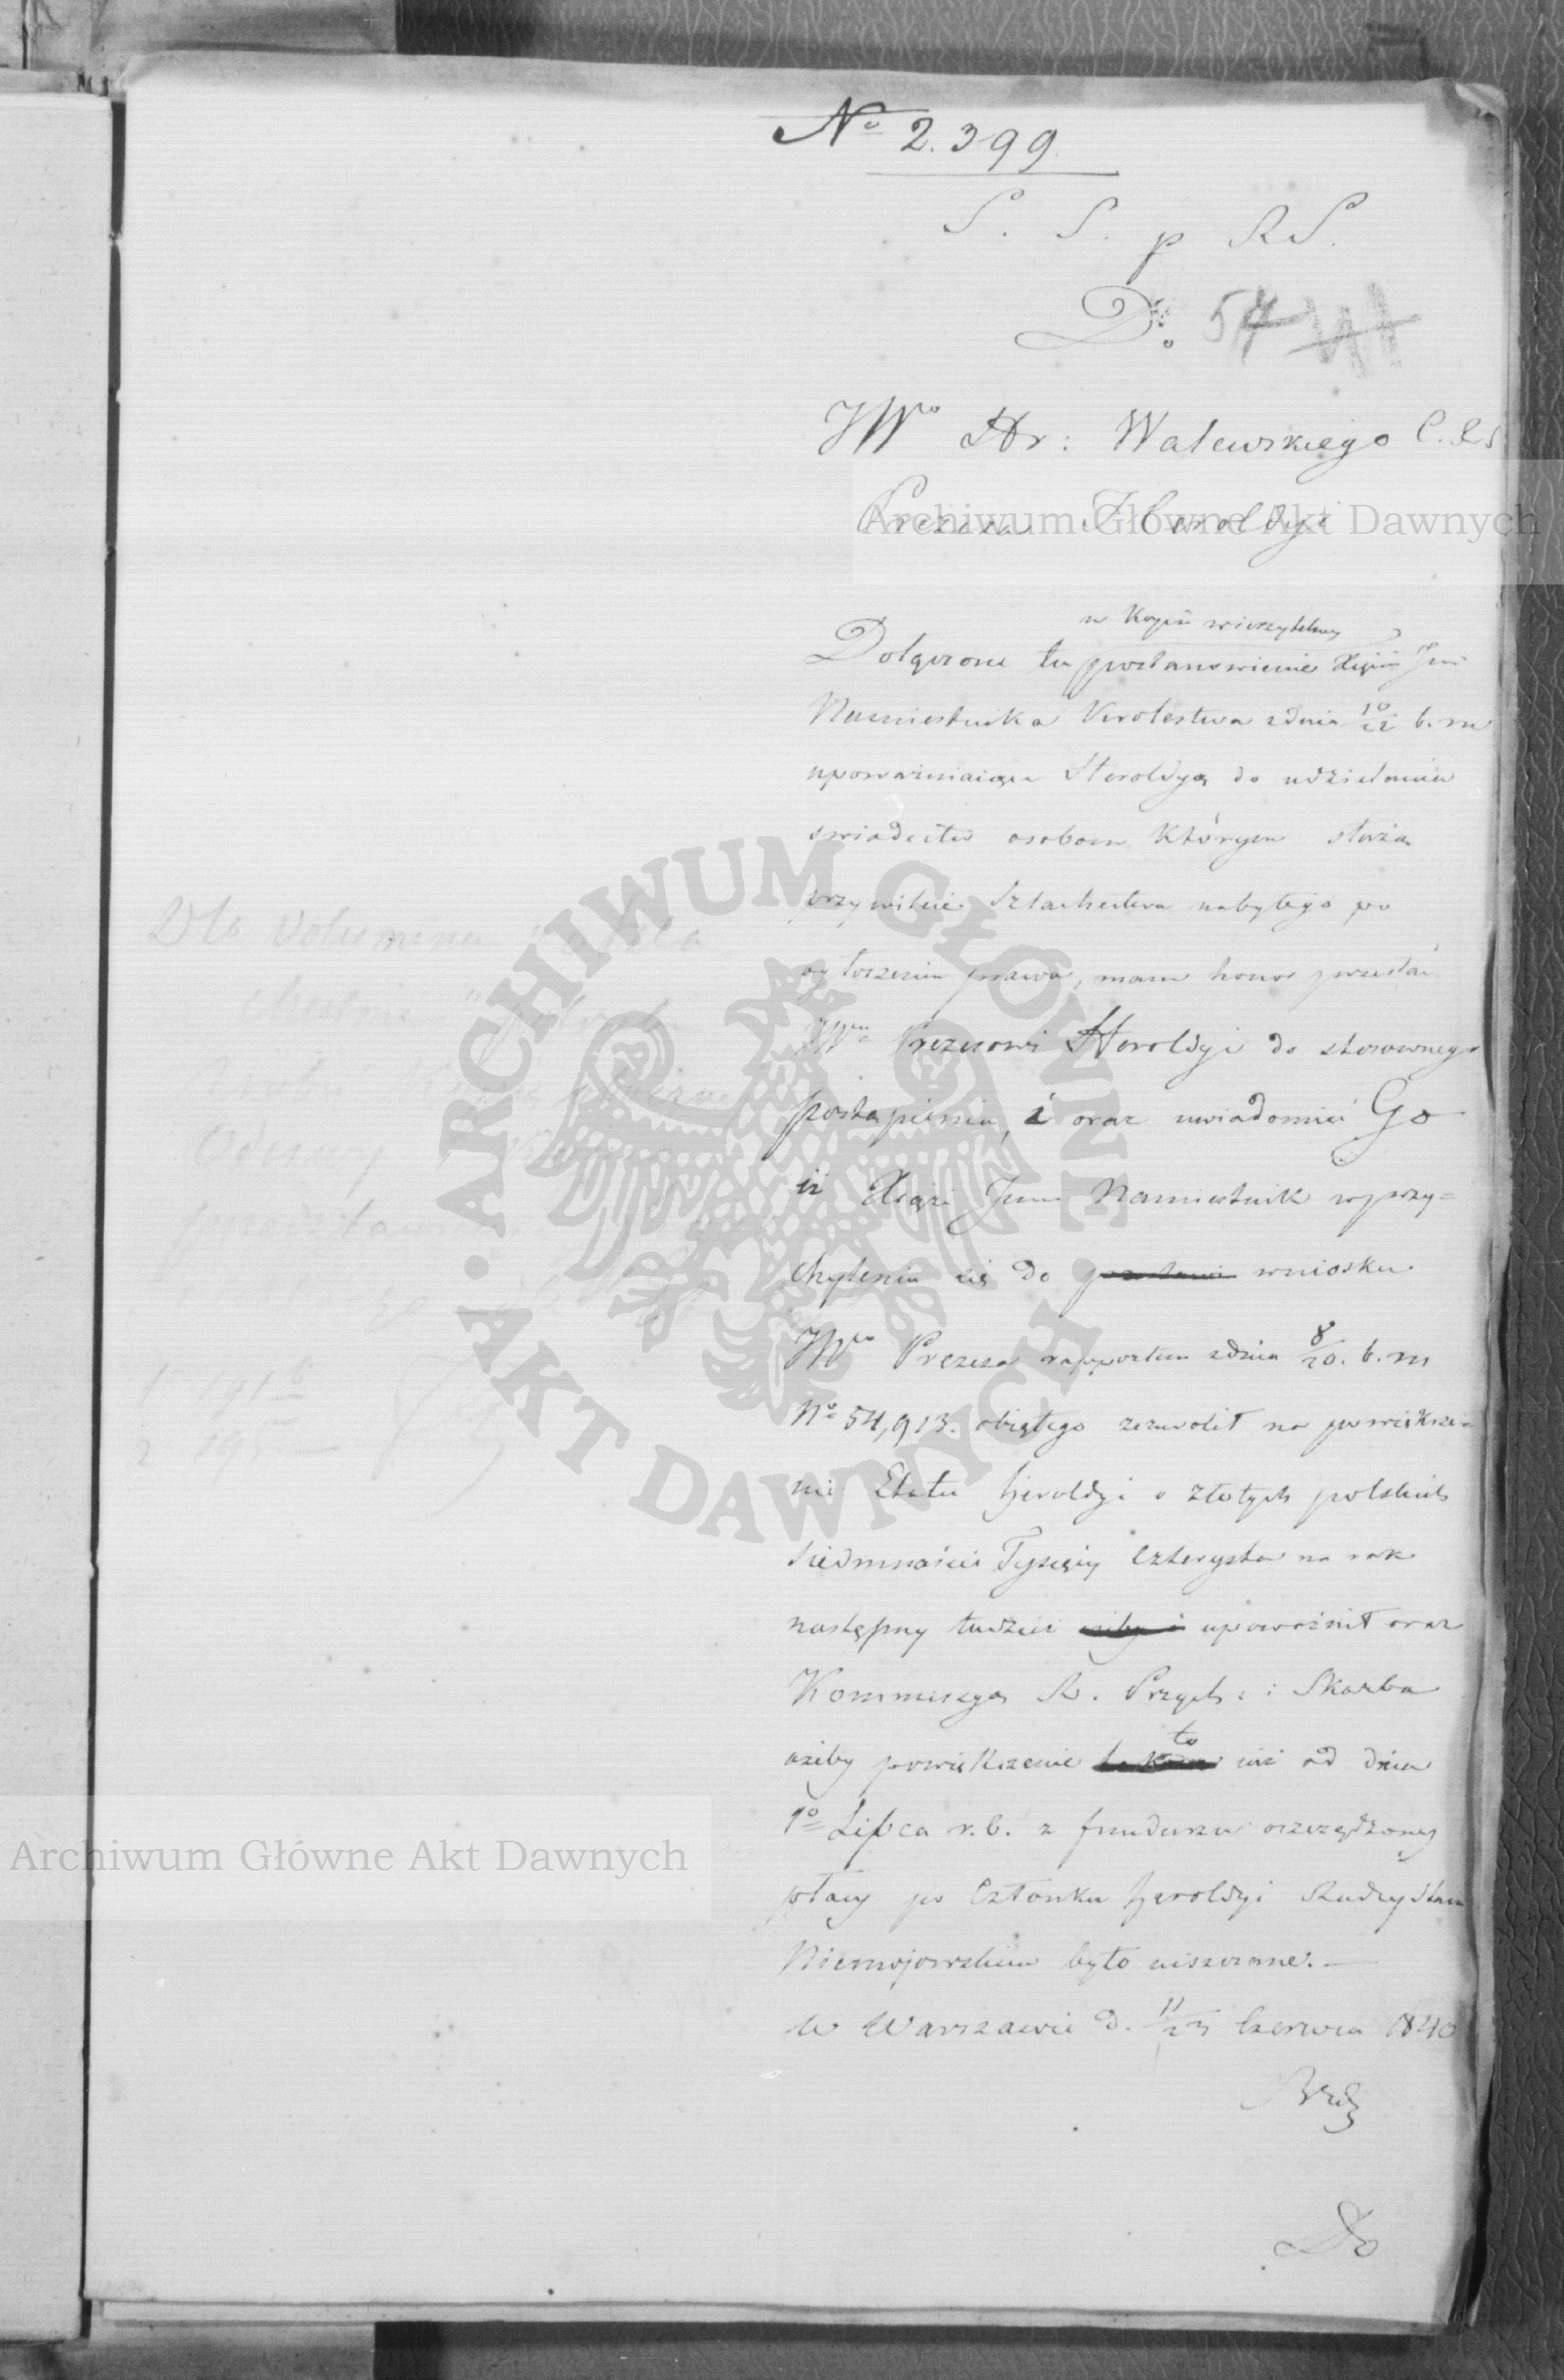 No 2.399.
S. S. p RS.
Do. 57
JWo Hr: Walewskiego C. R S
Prezesa Heroldyi
w Kopii wierzytelney
Dołączone tu postanowienie Xięcia Jmci
Namiestnika Królestwa z dnia 10/22 b. m
upoważniaiące Heroldyą do udzielania
świadectw osobom którym służą
przywileie Szlachectwa nabytego po
ogłoszeniu prawa, mam honor przesłać
JWmu Prezesowi Heroldyi do stosownego
postąpienia, i oraz uwiadomić Go
iż Xiąże Jmć Namiestnik w przy=
chyleniu się do wniosku
JWo Prezesa rapportem z dnia 8/20. b. m
No 54,913. obiętego zezwolił na powiększe=
nie Etatu Heroldyi o złotych polskich
siedmnaście Tysięcy czterysta na rok
następny tudzież upoważnił oraz
Kommissyą R. Przych: i Skarbu
ażeby powiększenie to iuż od dnia
1o Lipca r. b. z funduszu oszczędzoney
płacy po Członku Heroldyi Radzcy Stanu
Niemojowskim było uiszczane. —
w Warszawie d. 11/23 Czerwca 1840
Do
Dla
ARCHIWUM GŁÓWNE AKT DAWNYCH
Archiwum Główne Akt Dawnych
Archiwum Główne Akt Dawnych